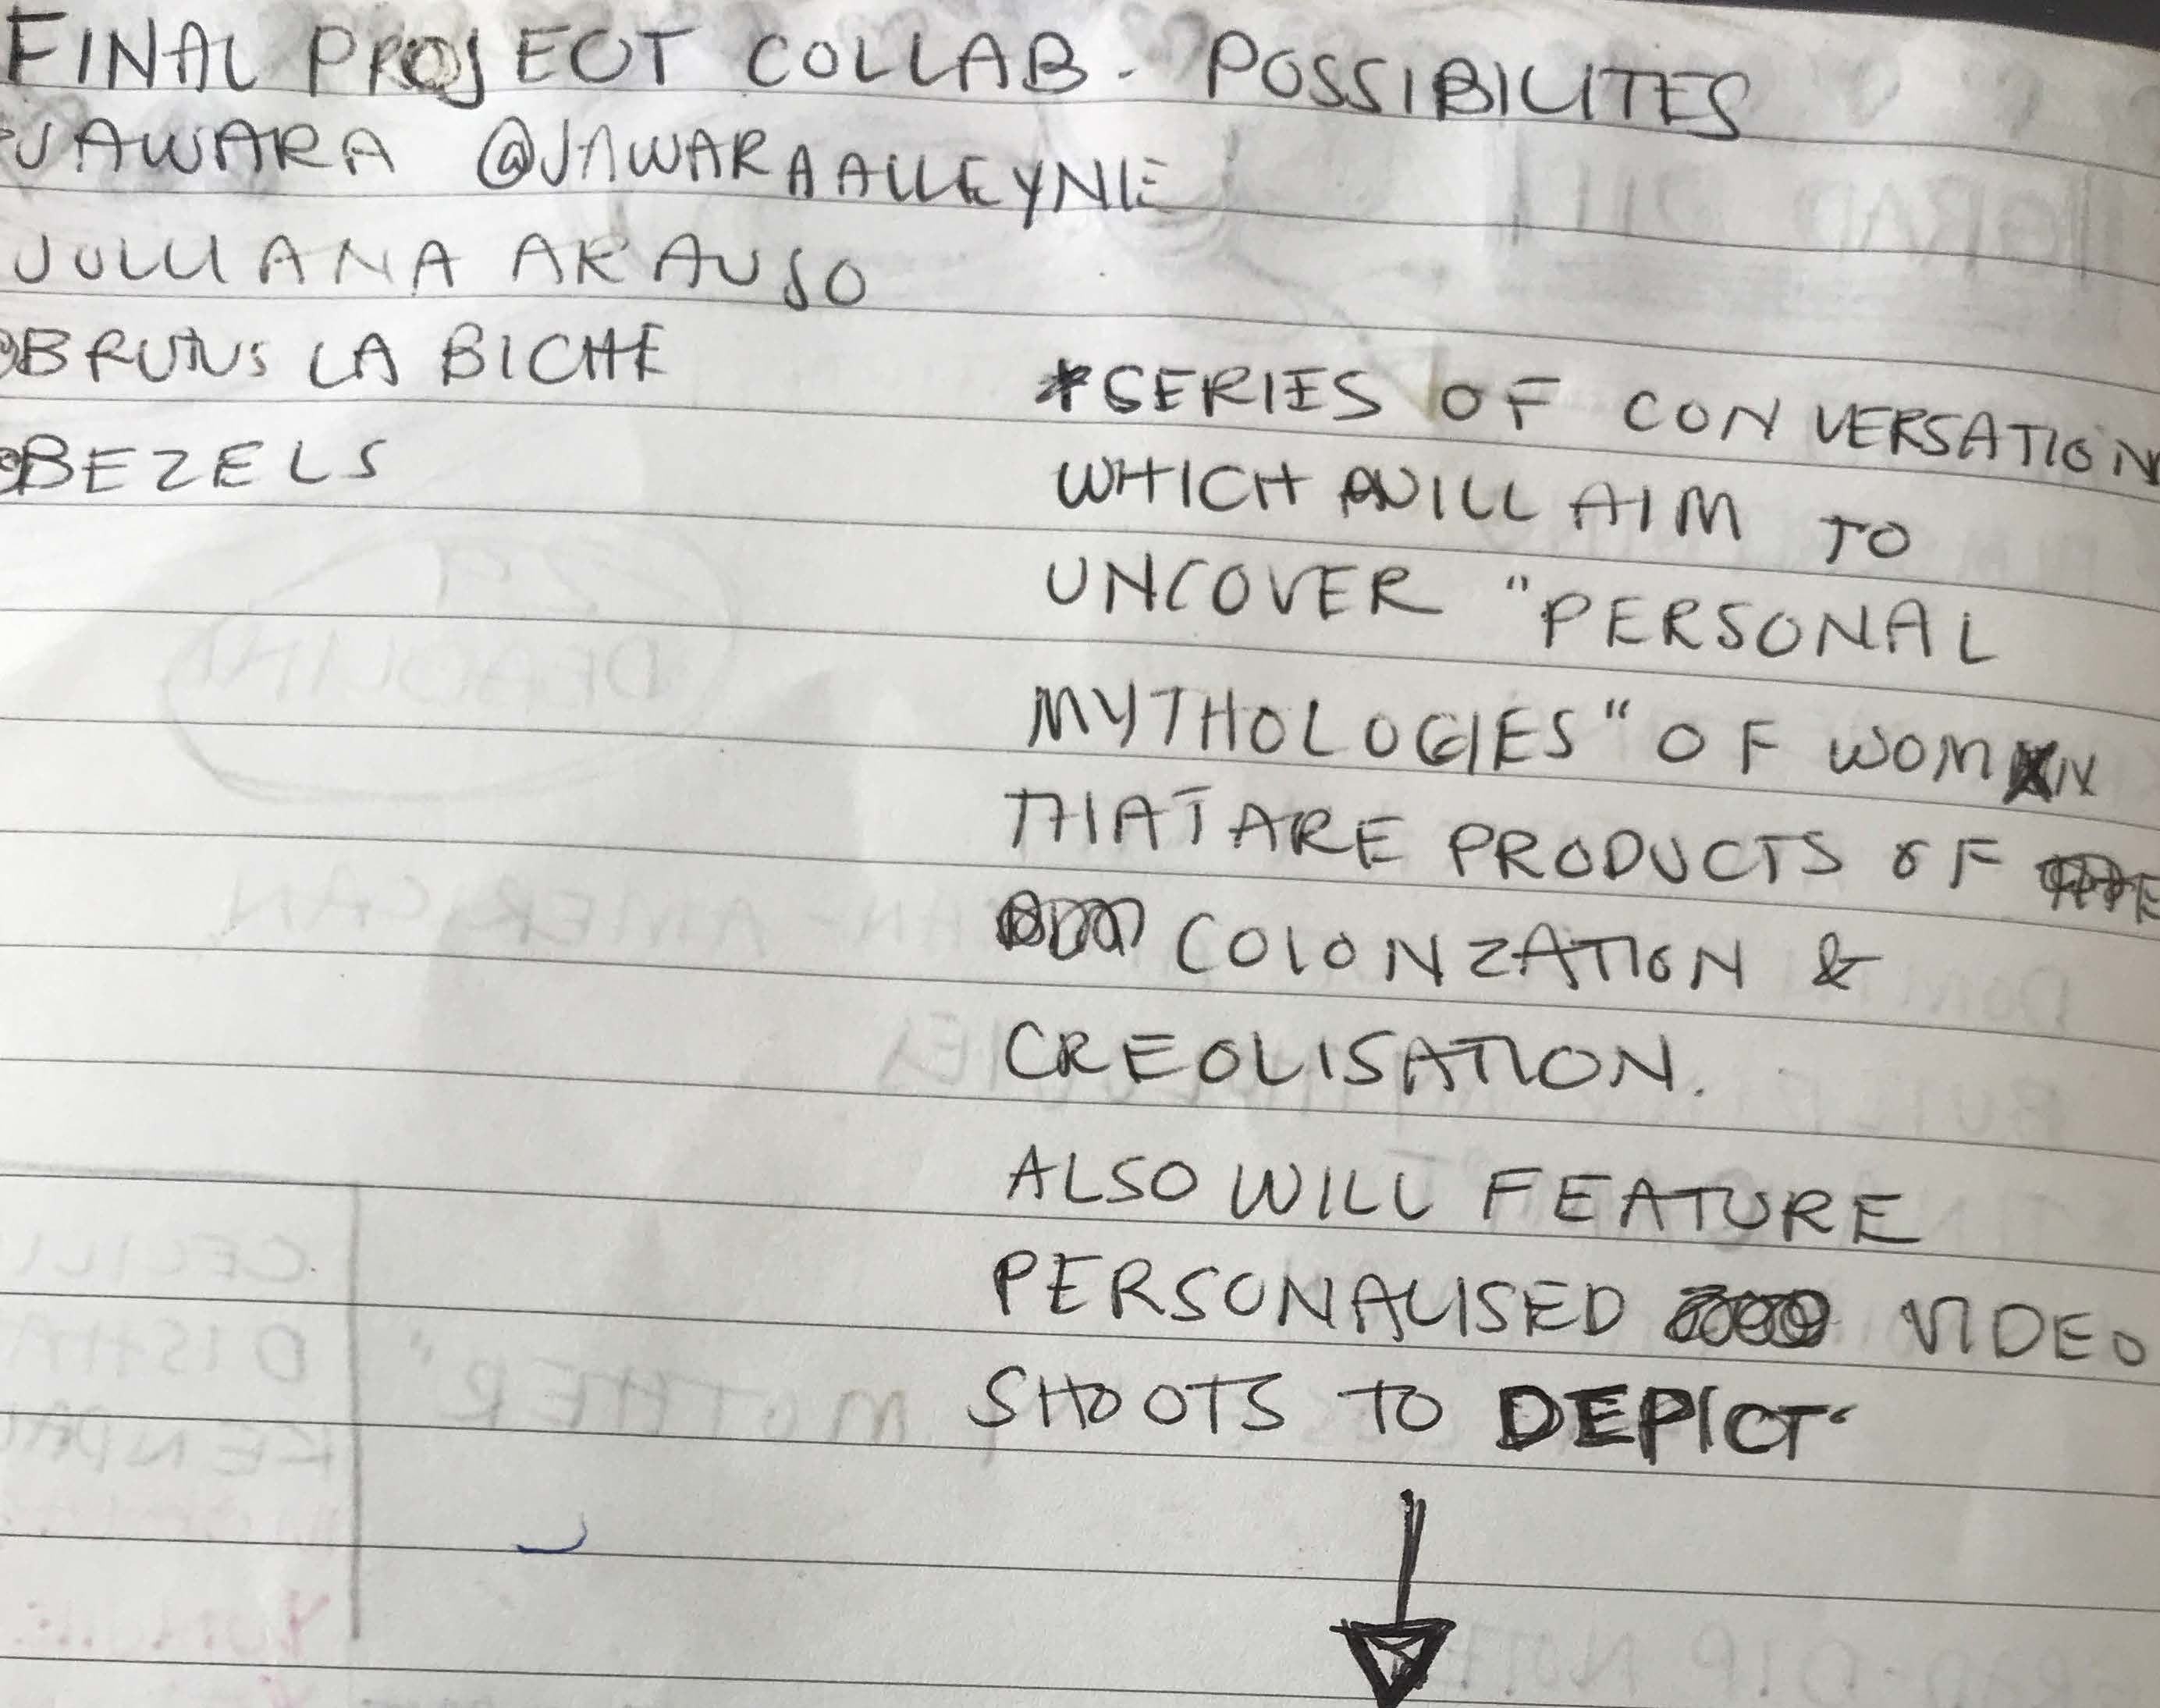 FINAL PROJECT COLLAB. POSSIBILITES
JAWARA @JAWARAALLEYNE
JULLIANA ARAUSO
@BRUTUS LA BICHE
@BEZELS
*SERIES OF CONVERSATION
WHICH WILL AIM TO
UNCOVER "PERSONAL
MYTHOLOGIES" OF WOMXN
THAT ARE PRODUCTS OF
COLONZATION &
CREOLISATION.
ALSO WILL FEATURE
PERSONALISED VIDEO
SHOOTS TO DEPICT